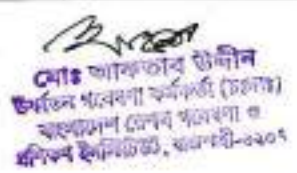 মোঃ আফতাব উদ্দীন
উর্ধ্বতন গবেষণা কর্মকর্তা (চঃদাঃ)
বাংলাদেশ রেশম গবেষণা ও
প্রশিক্ষণ ইনস্টিটিউট, রাজশাহী-৬২০৭